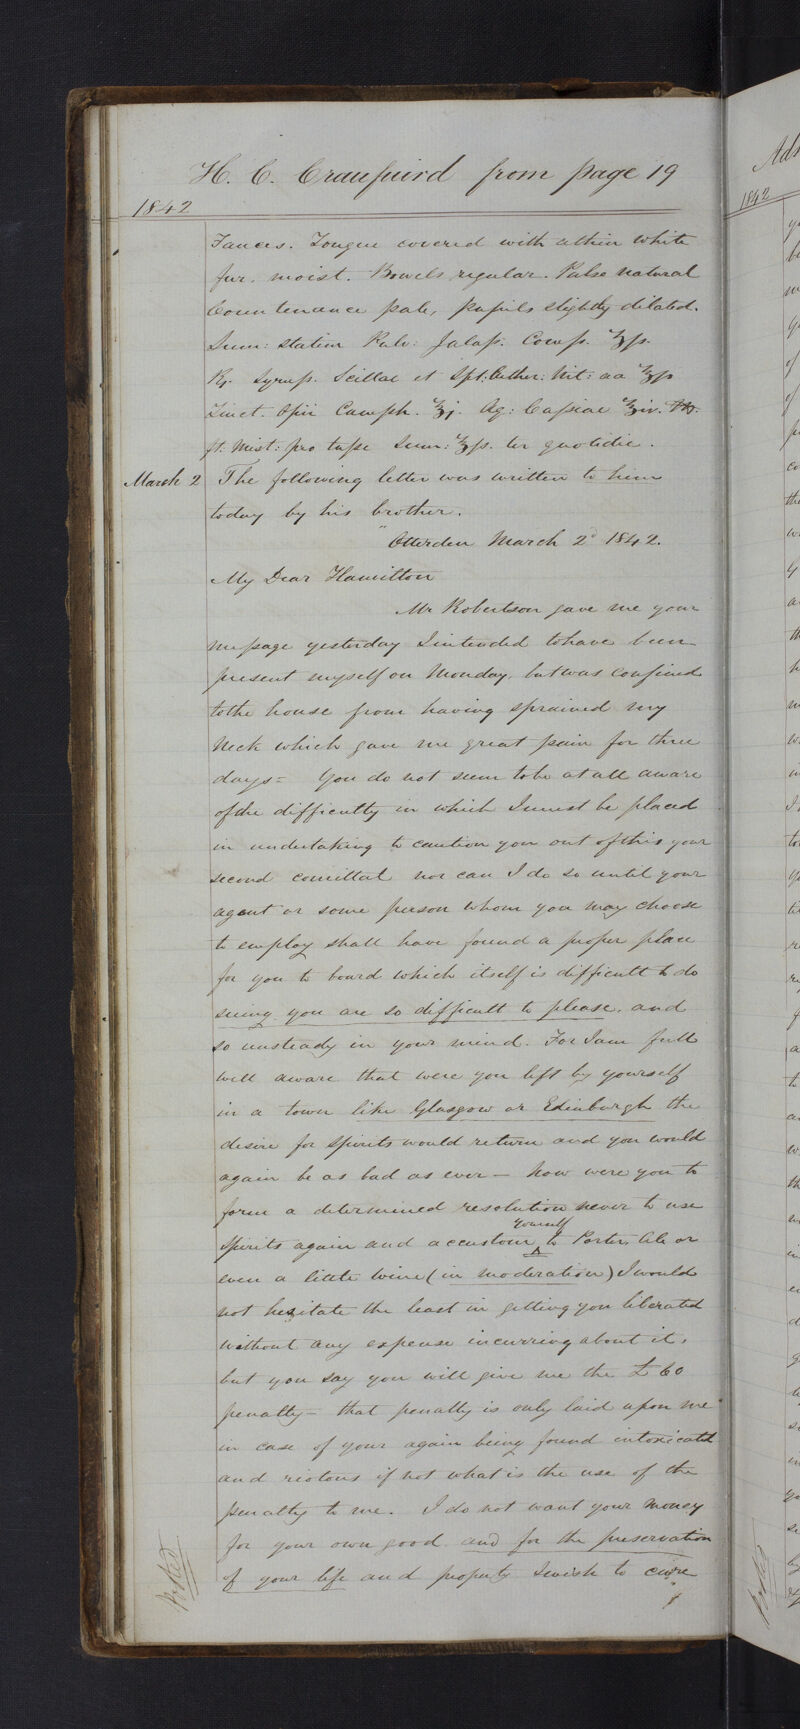 H. C. Craufuird from page 19
1842
Fauces. Tongue covered with athin white
fur. moist. Bowels regular. Pulse natural
Countenance pale, pupils slightly dilated.
Sum: statim Pulv: Jalap: Comp. ʒſs.
Rx. Syrup. Scillae et Spt: Aether: Nit: aa ℥ſs
Tinct. Opii Camph. ℥j. Aq: Cassiae ℥iv. M.
ft. Mist: pro tusse Sum: ℥ſs. ter quotidie.
March 2 The following letter was written to him
today by his brother.
"Otterden March 2d 1842.
My Dear Hamilton
Mr Robertson gave me your
message yesterday I intended tohave been
present myself on Monday, but was confined
tothe house from having sprained my
Neck which gave me great pain for three
days = You do not seem tobe atall aware
ofthe difficulty in which I must be placed
in undertaking to caution you out ofthis your
second comittal nor can I do so until your
agent or some person whom you may choose
to employ shall have found a proper place
for you to board which itself is difficult to do
seeing you are so difficult to please, and
so unsteady in your mind. For Iam full
well aware that were you left by yourself
in a town like Glasgow or Edinburgh the
desire for spirits would return and you would
again be as bad as ever – how were you to
form a determined resolution never to use
yourself
Spirits again and accustom to Porter, Ale or
even a little wine (in moderation) I would
not hesitate the least in getting you liberated
without any expense incurring about it,
but you say you will give me the £60
penalty – that penalty is only laid upon me
in case of your again being found intoxicated
and riotous if not what is the use of the
penalty to me. I do not want your money
for your own good and for the preservation
of your life and property I wish to cure
Noted
Ad
1842